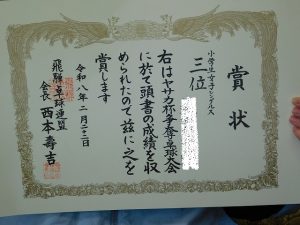 賞状
小学生女子シングルス
三位
右はヤサカ杯争奪卓球大会
に於て頭書の成績を収
められたので茲に之を
賞します
令和八年二月二十二日
飛騨卓球連盟
会長 西本壽吉